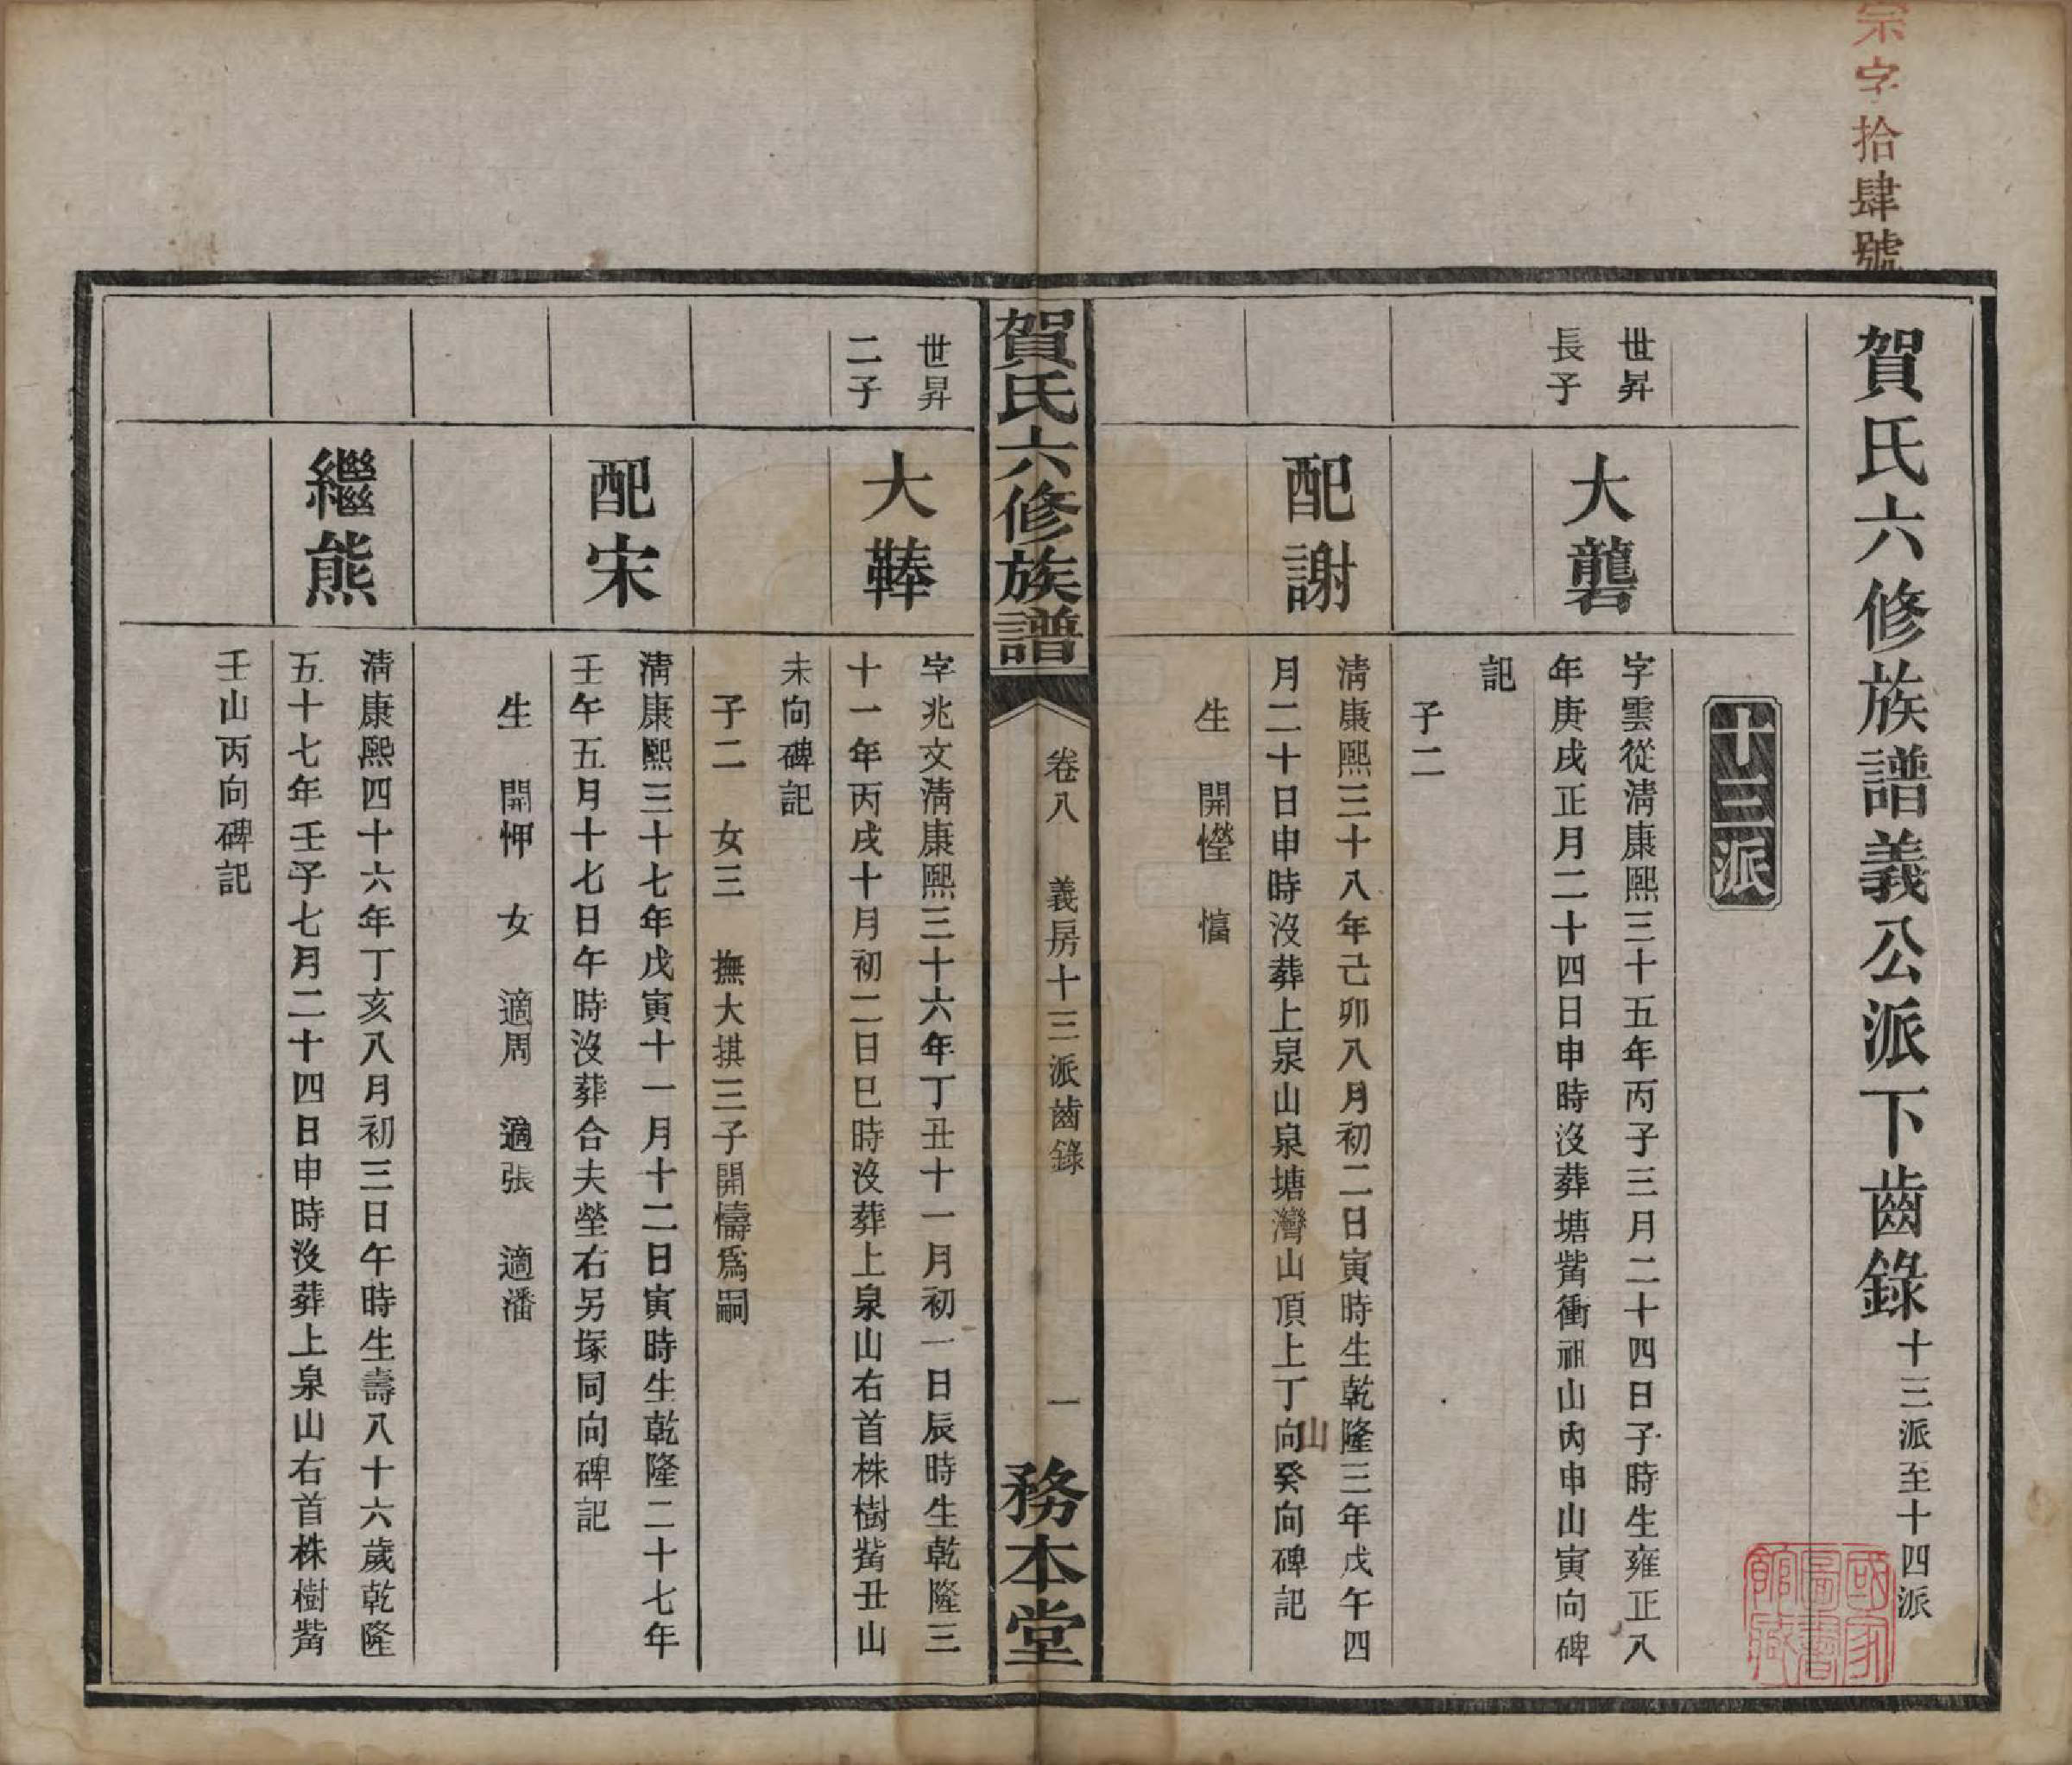 宗字拾肆號
賀氏六修族譜義公派下齒錄 十三派至十四派
十三派
世昇
長子
大礱
字雲從淸康熙三十五年丙子三月二十四日子時生雍正八
年庚戌正月二十四日申時沒葬塘觜衝祖山內申山寅向碑
記
子二
配謝
淸康熙三十八年己卯八月初二日寅時生乾隆三年戊午四
月二十日申時沒葬上泉山泉塘灣山頂上丁向癸向碑記
山
生 開慳 愊
賀氏六修族譜
卷八 義房十三派齒錄
一
務本堂
世昇
二子
大
字兆文淸康熙三十六年丁丑十一月初一日辰時生乾隆三
十一年丙戌十月初二日巳時沒葬上泉山右首株樹觜丑山
未向碑記
子二 女三 撫大掑三子開懤爲嗣
配宋
淸康熙三十七年戊寅十一月十二日寅時生乾隆二十七年
壬午五月十七日午時沒葬合夫塋右另塚同向碑記
生 開㤉 女 適周 適張 適潘
繼熊
淸康熙四十六年丁亥八月初三日午時生壽八十六歲乾隆
五十七年壬子七月二十四日申時沒葬上泉山右首株樹觜
壬山丙向碑記
國家圖書館藏